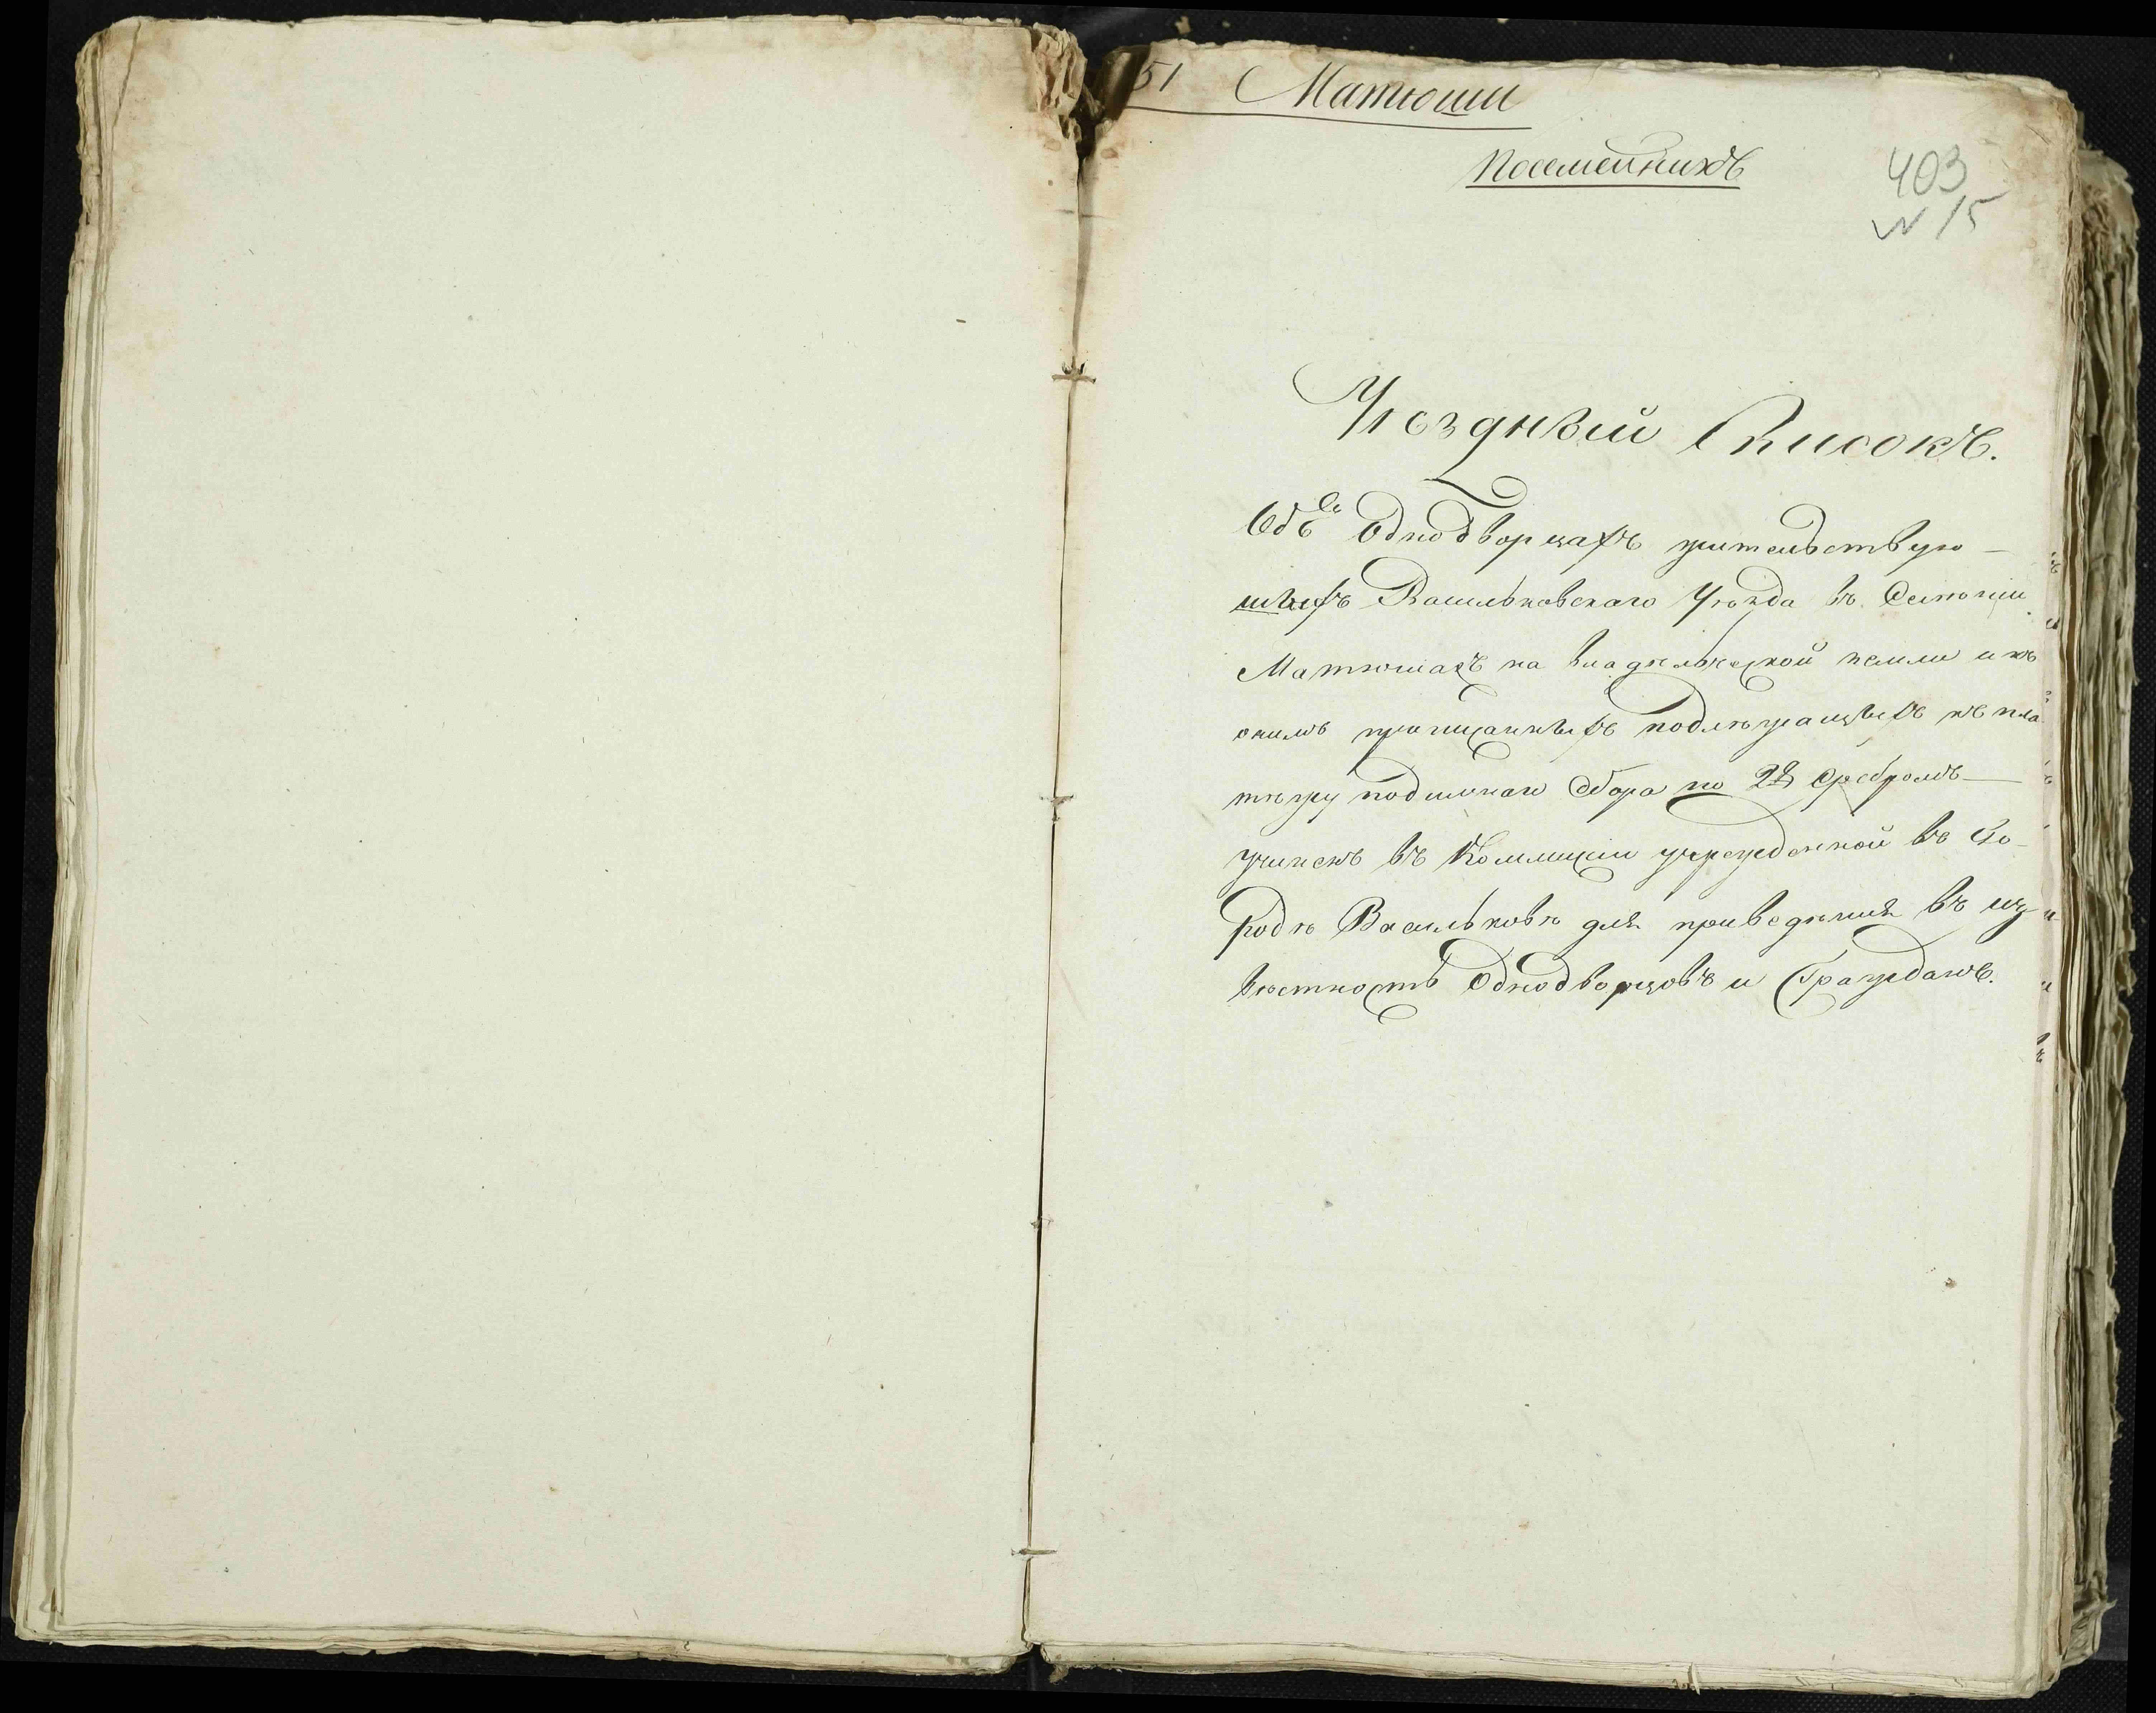 51 Матюши
Посемейникъ
403
N 15
Уѣздный Списокъ.
Объ Однодворцахъ жительствую-
щихъ Васильковскаго Уѣзда въ Селеніи
Матюшахъ на владѣльческой земли и къ
онимъ приписанныхъ подлежащихъ къ пла
тежу подымнаго сбора по 2 Серебромъ
учиненъ въ Коммисіи учрежденной въ Го-
родѣ Васильковѣ для приведенія въ из
вѣстность Однодворцовъ и Гражданъ.